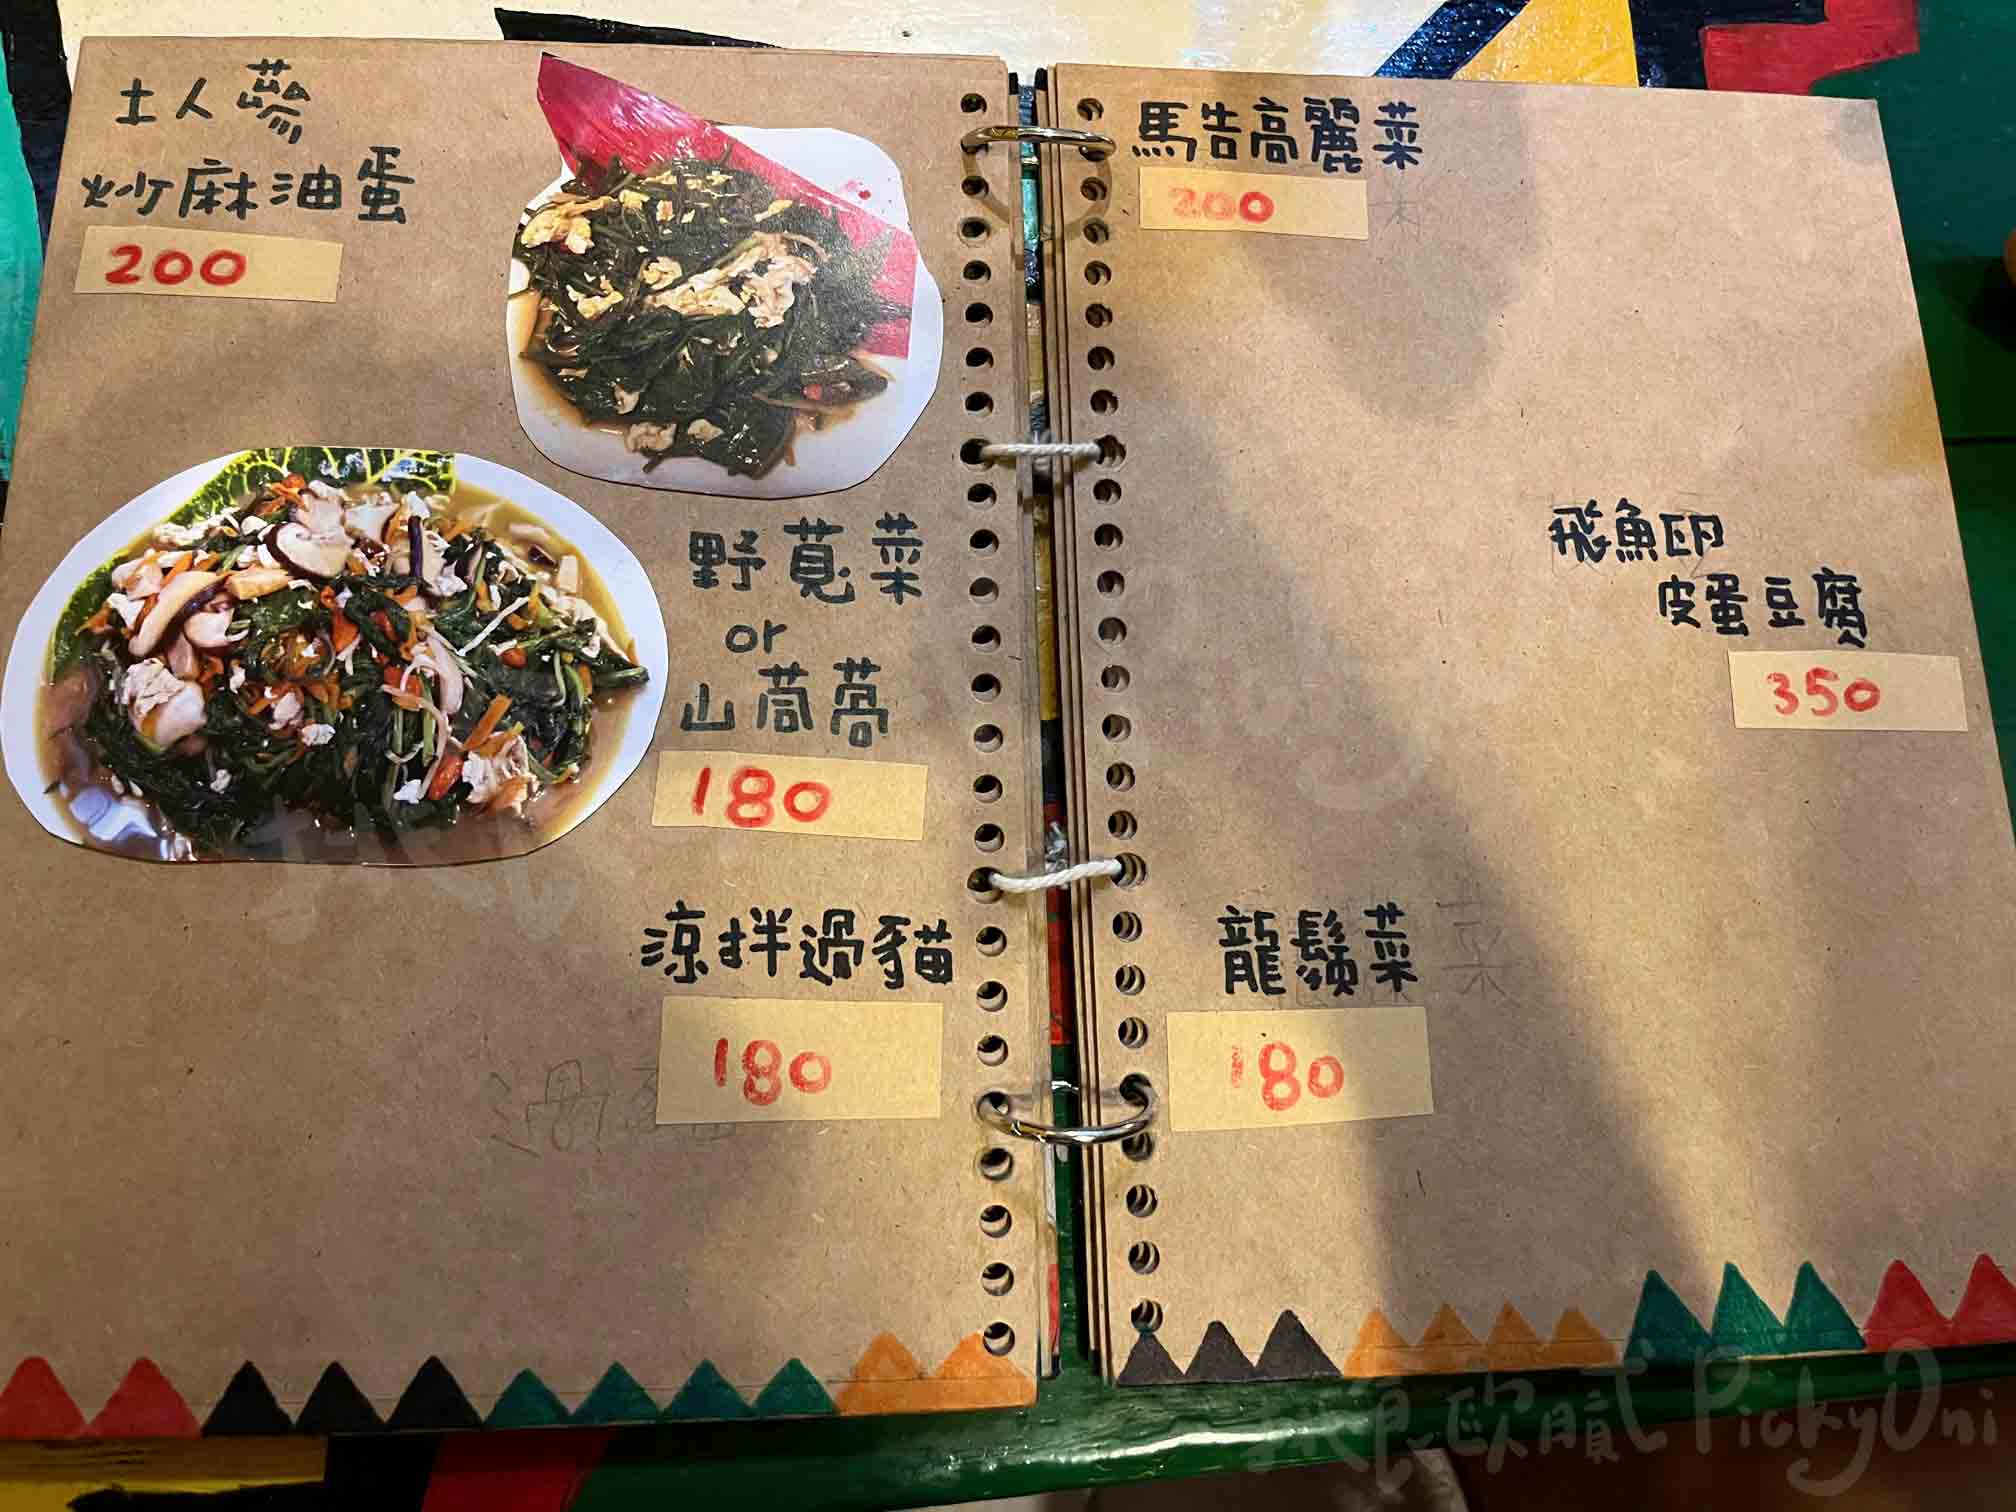 土人蔘
炒麻油蛋
200
野莧菜
or
山茼蒿
180
涼拌過貓
180
馬告高麗菜
200
飛魚卵
皮蛋豆腐
350
龍鬚菜
180
PickyOni